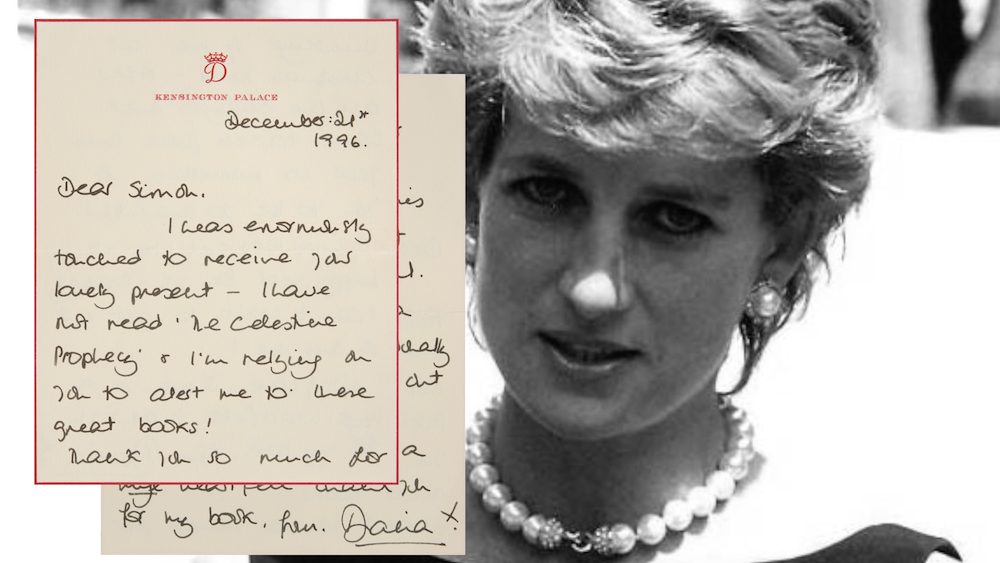 D
KENSINGTON PALACE
December: 21st
1996.
Dear Simon.
I was enormously
touched to receive your
lovely present - I have
not read 'The Celestine
Prophecy' & I'm relying on
you to alert me to these
great books!
Thank you so much for
a
out
huge heartfelt thank you
for my book, from. Diana x.